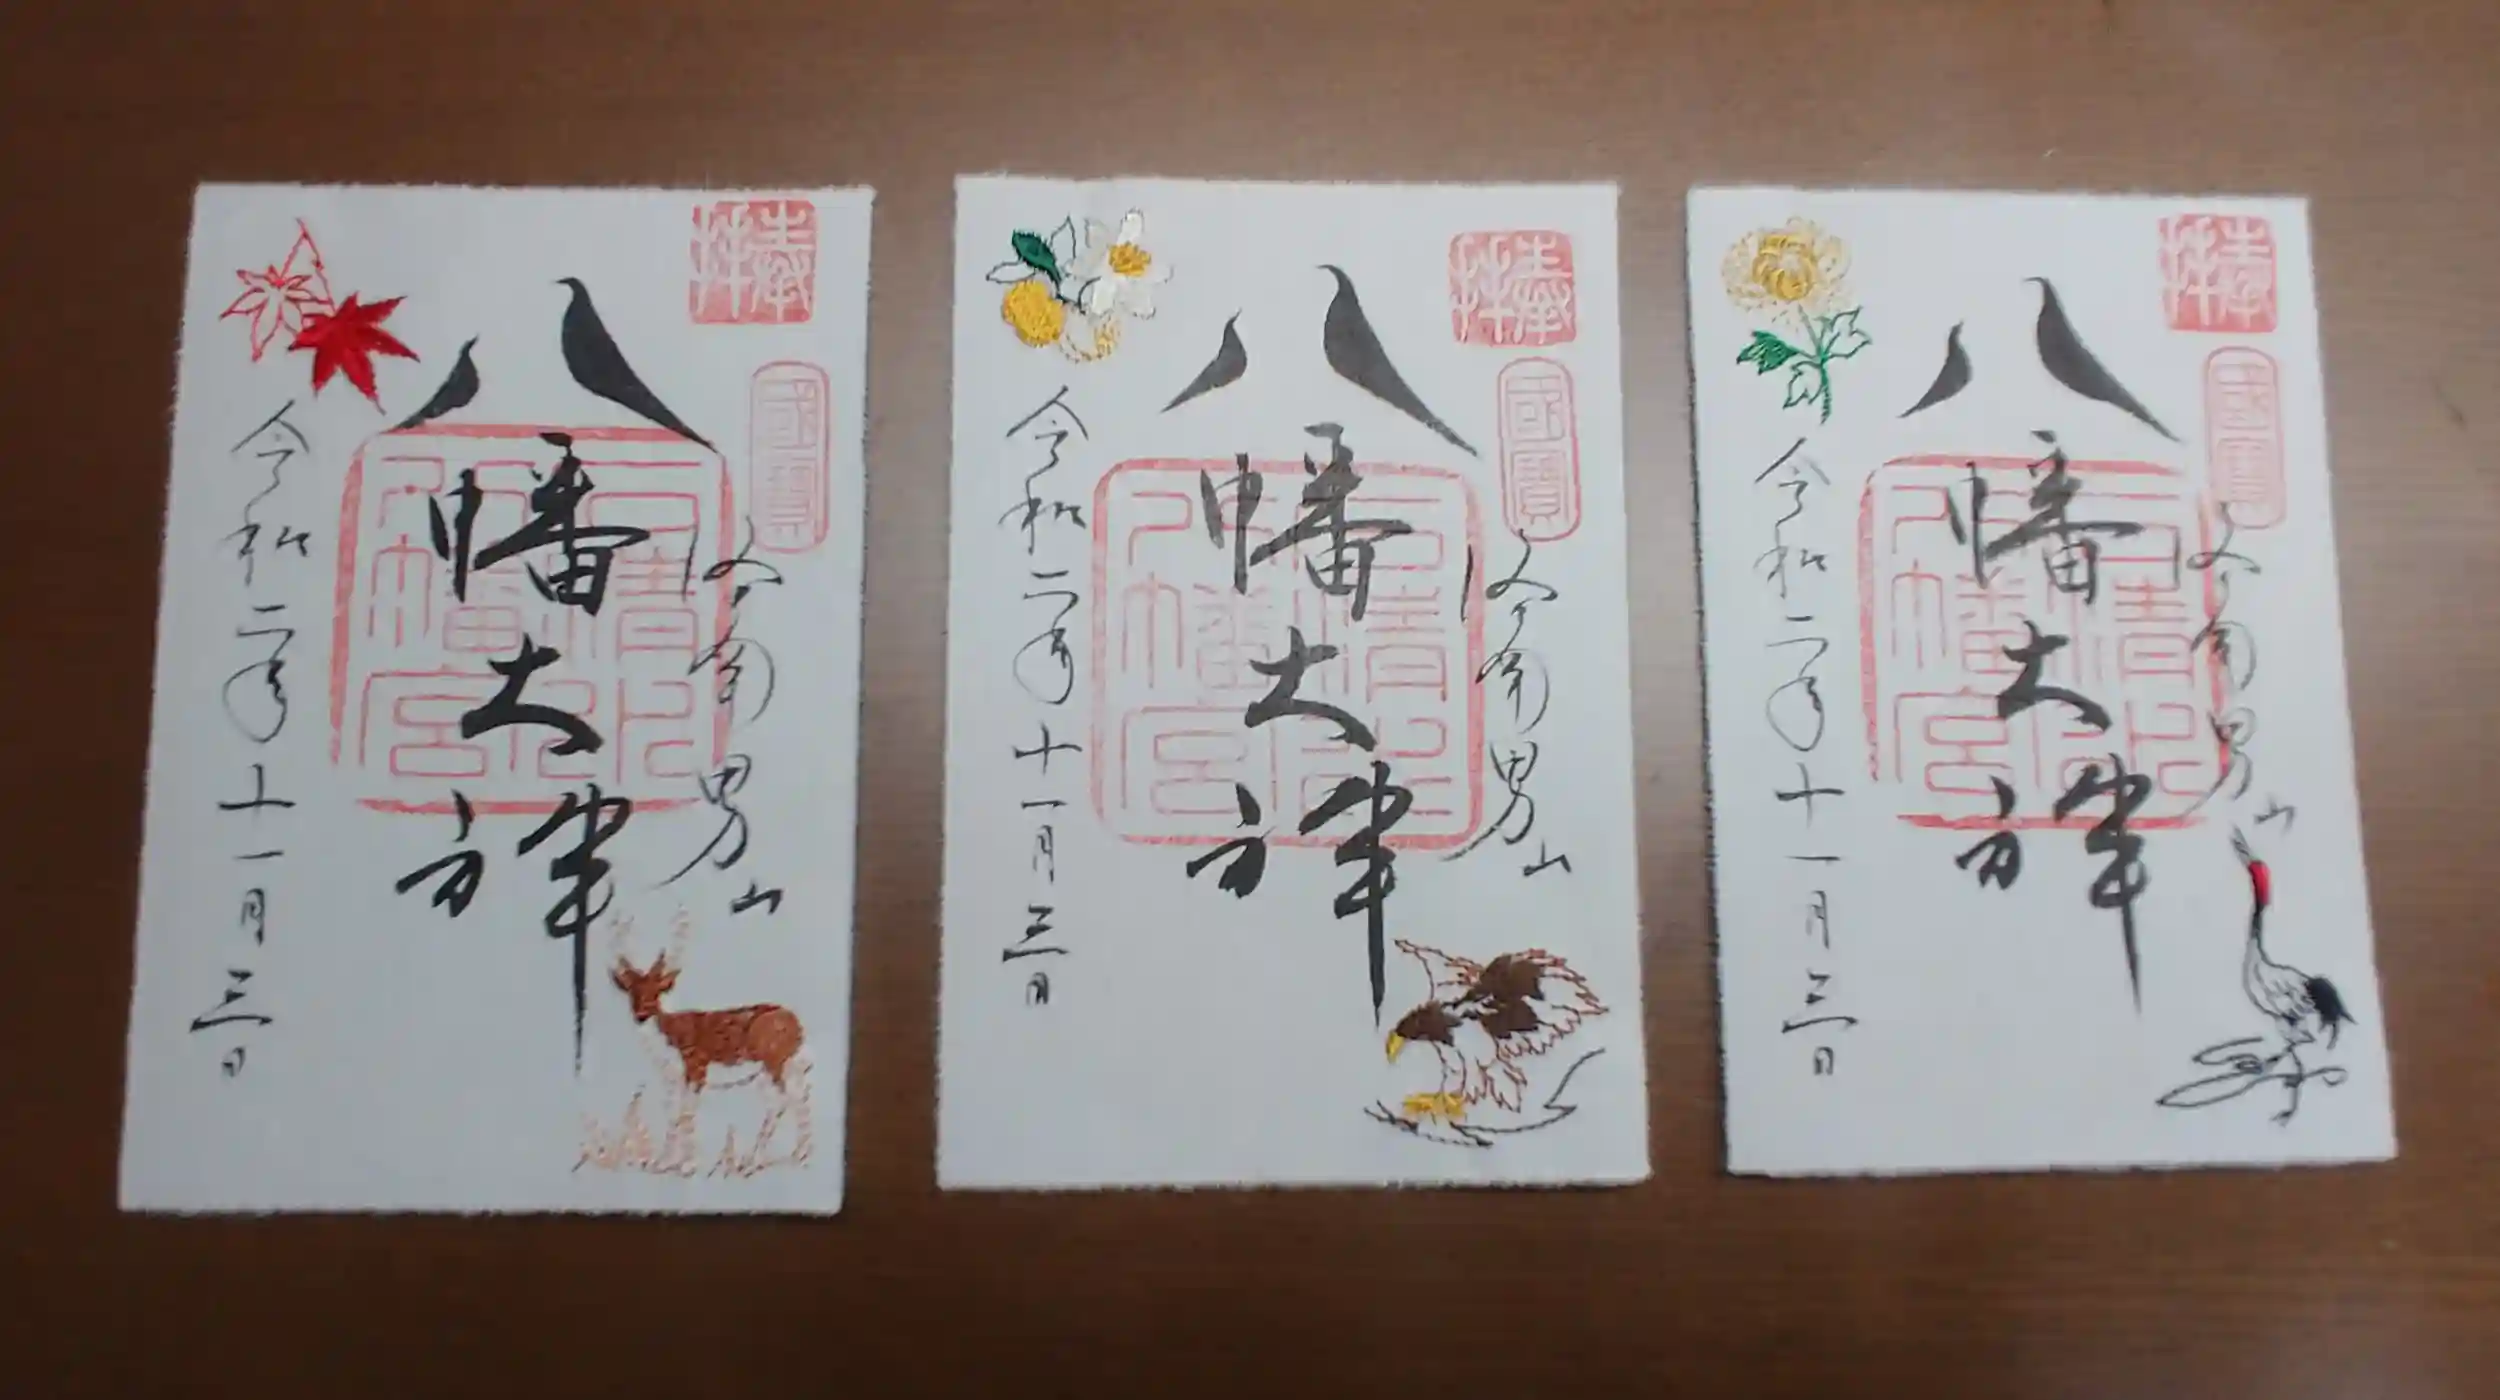 奉拝
國寶
洛南男山
八幡大神
石清水
八幡宮
令和二年十一月三日
奉拝
國寶
洛南男山
八幡大神
石清水
八幡宮
令和二年十一月三日
奉拝
國寶
洛南男山
八幡大神
石清水
八幡宮
令和二年十一月三日